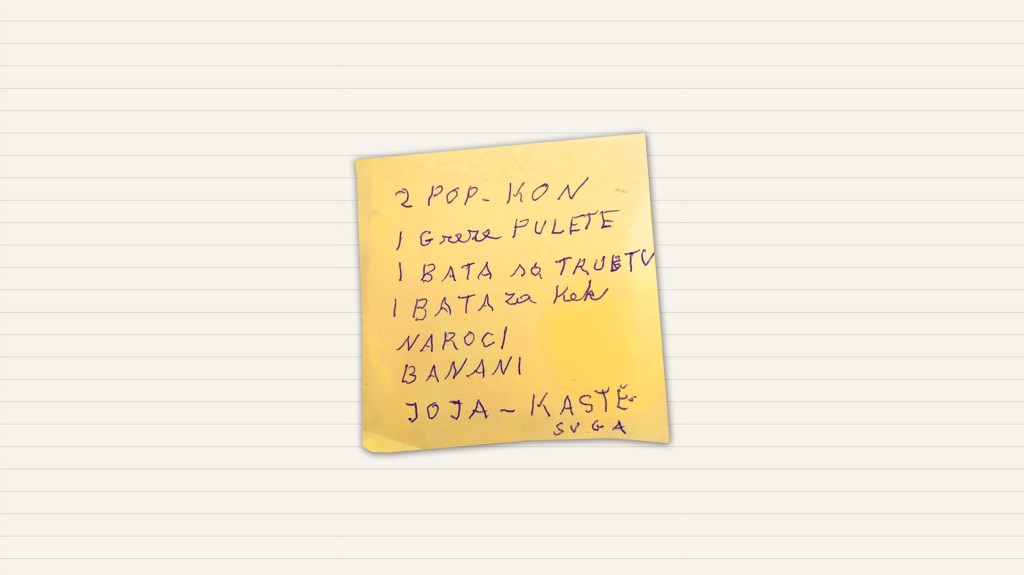 2 POP-KON
1 Greze PULETE
1 BATA sa TRUBTU
1 BATA za Kek
NAROCI
BANANI
JOJA - KASTĚ-
SUGA